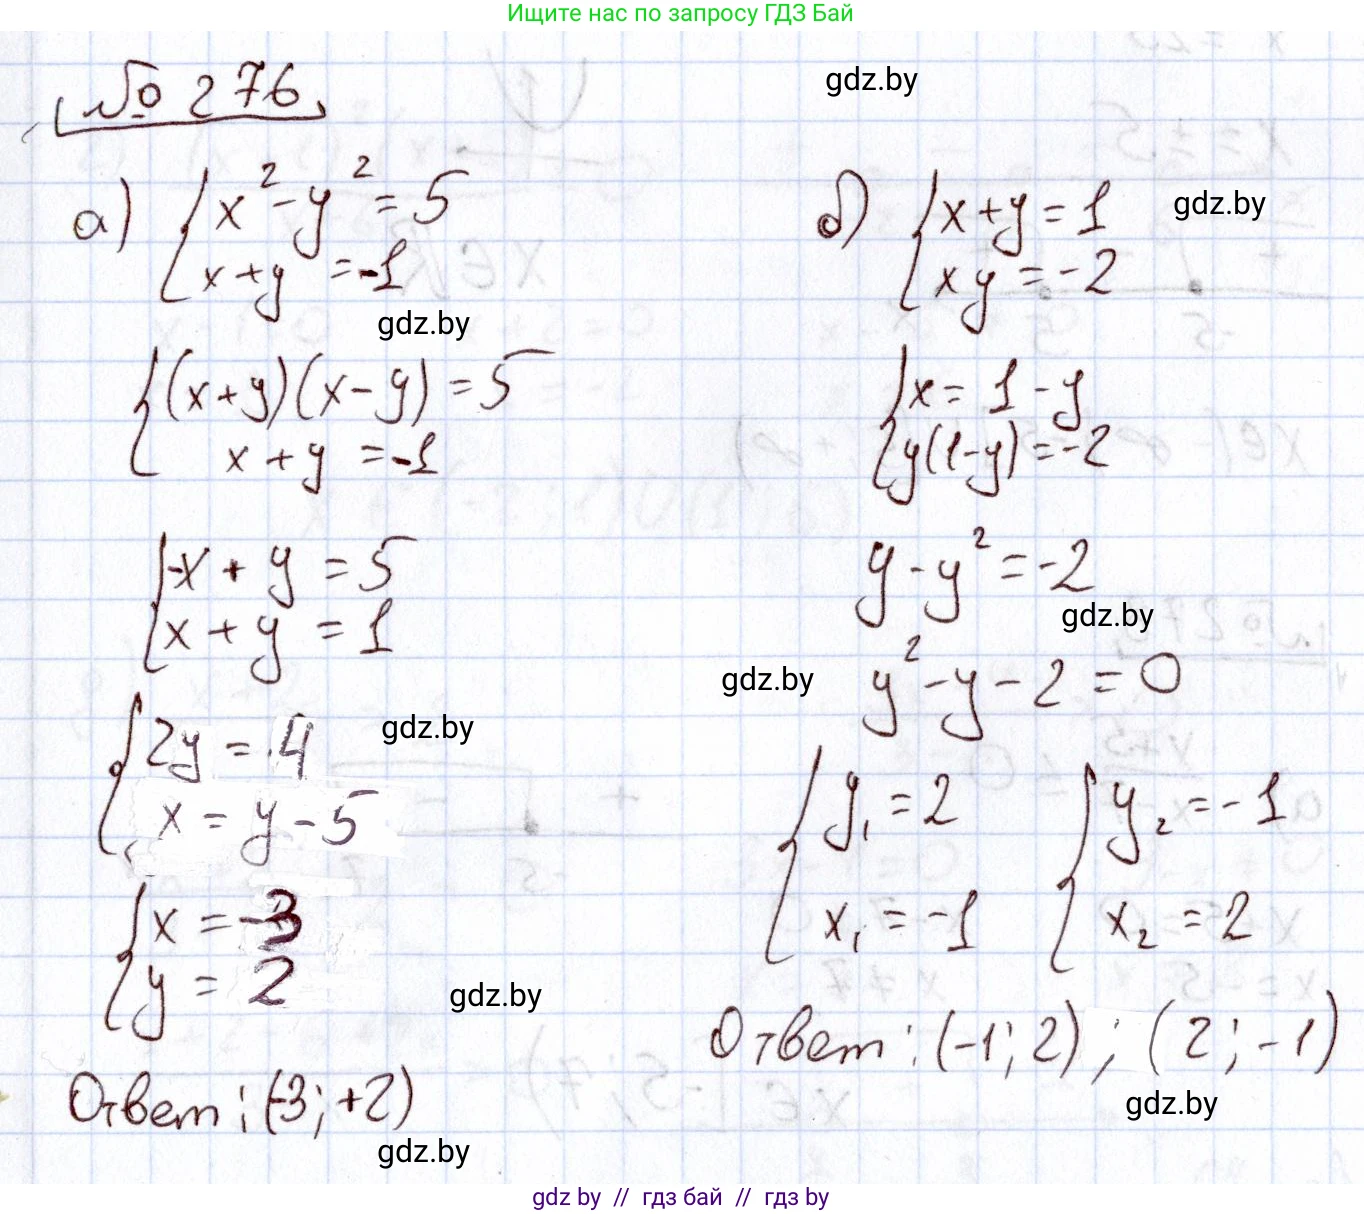 Ищите нас по запросу ГДЗ Бай
№ 276
gdz.by
а) { x² - y² = 5
x + y = -1
gdz.by
{ (x + y)(x - y) = 5
x + y = -1
{ -x + y = 5
x + y = 1
gdz.by
{ 2y = 4
x = y - 5
{ x = -3
y = 2
gdz.by
Ответ: (-3; +2)
gdz.by
б) { x + y = 1
xy = -2
gdz.by
{ x = 1 - y
y(1 - y) = -2
y - y² = -2
gdz.by
gdz.by
y² - y - 2 = 0
{ y₁ = 2 { y₂ = -1
x₁ = -1 x₂ = 2
Ответ: (-1; 2); (2; -1)
gdz.by
gdz by // гдз бай // gdz by